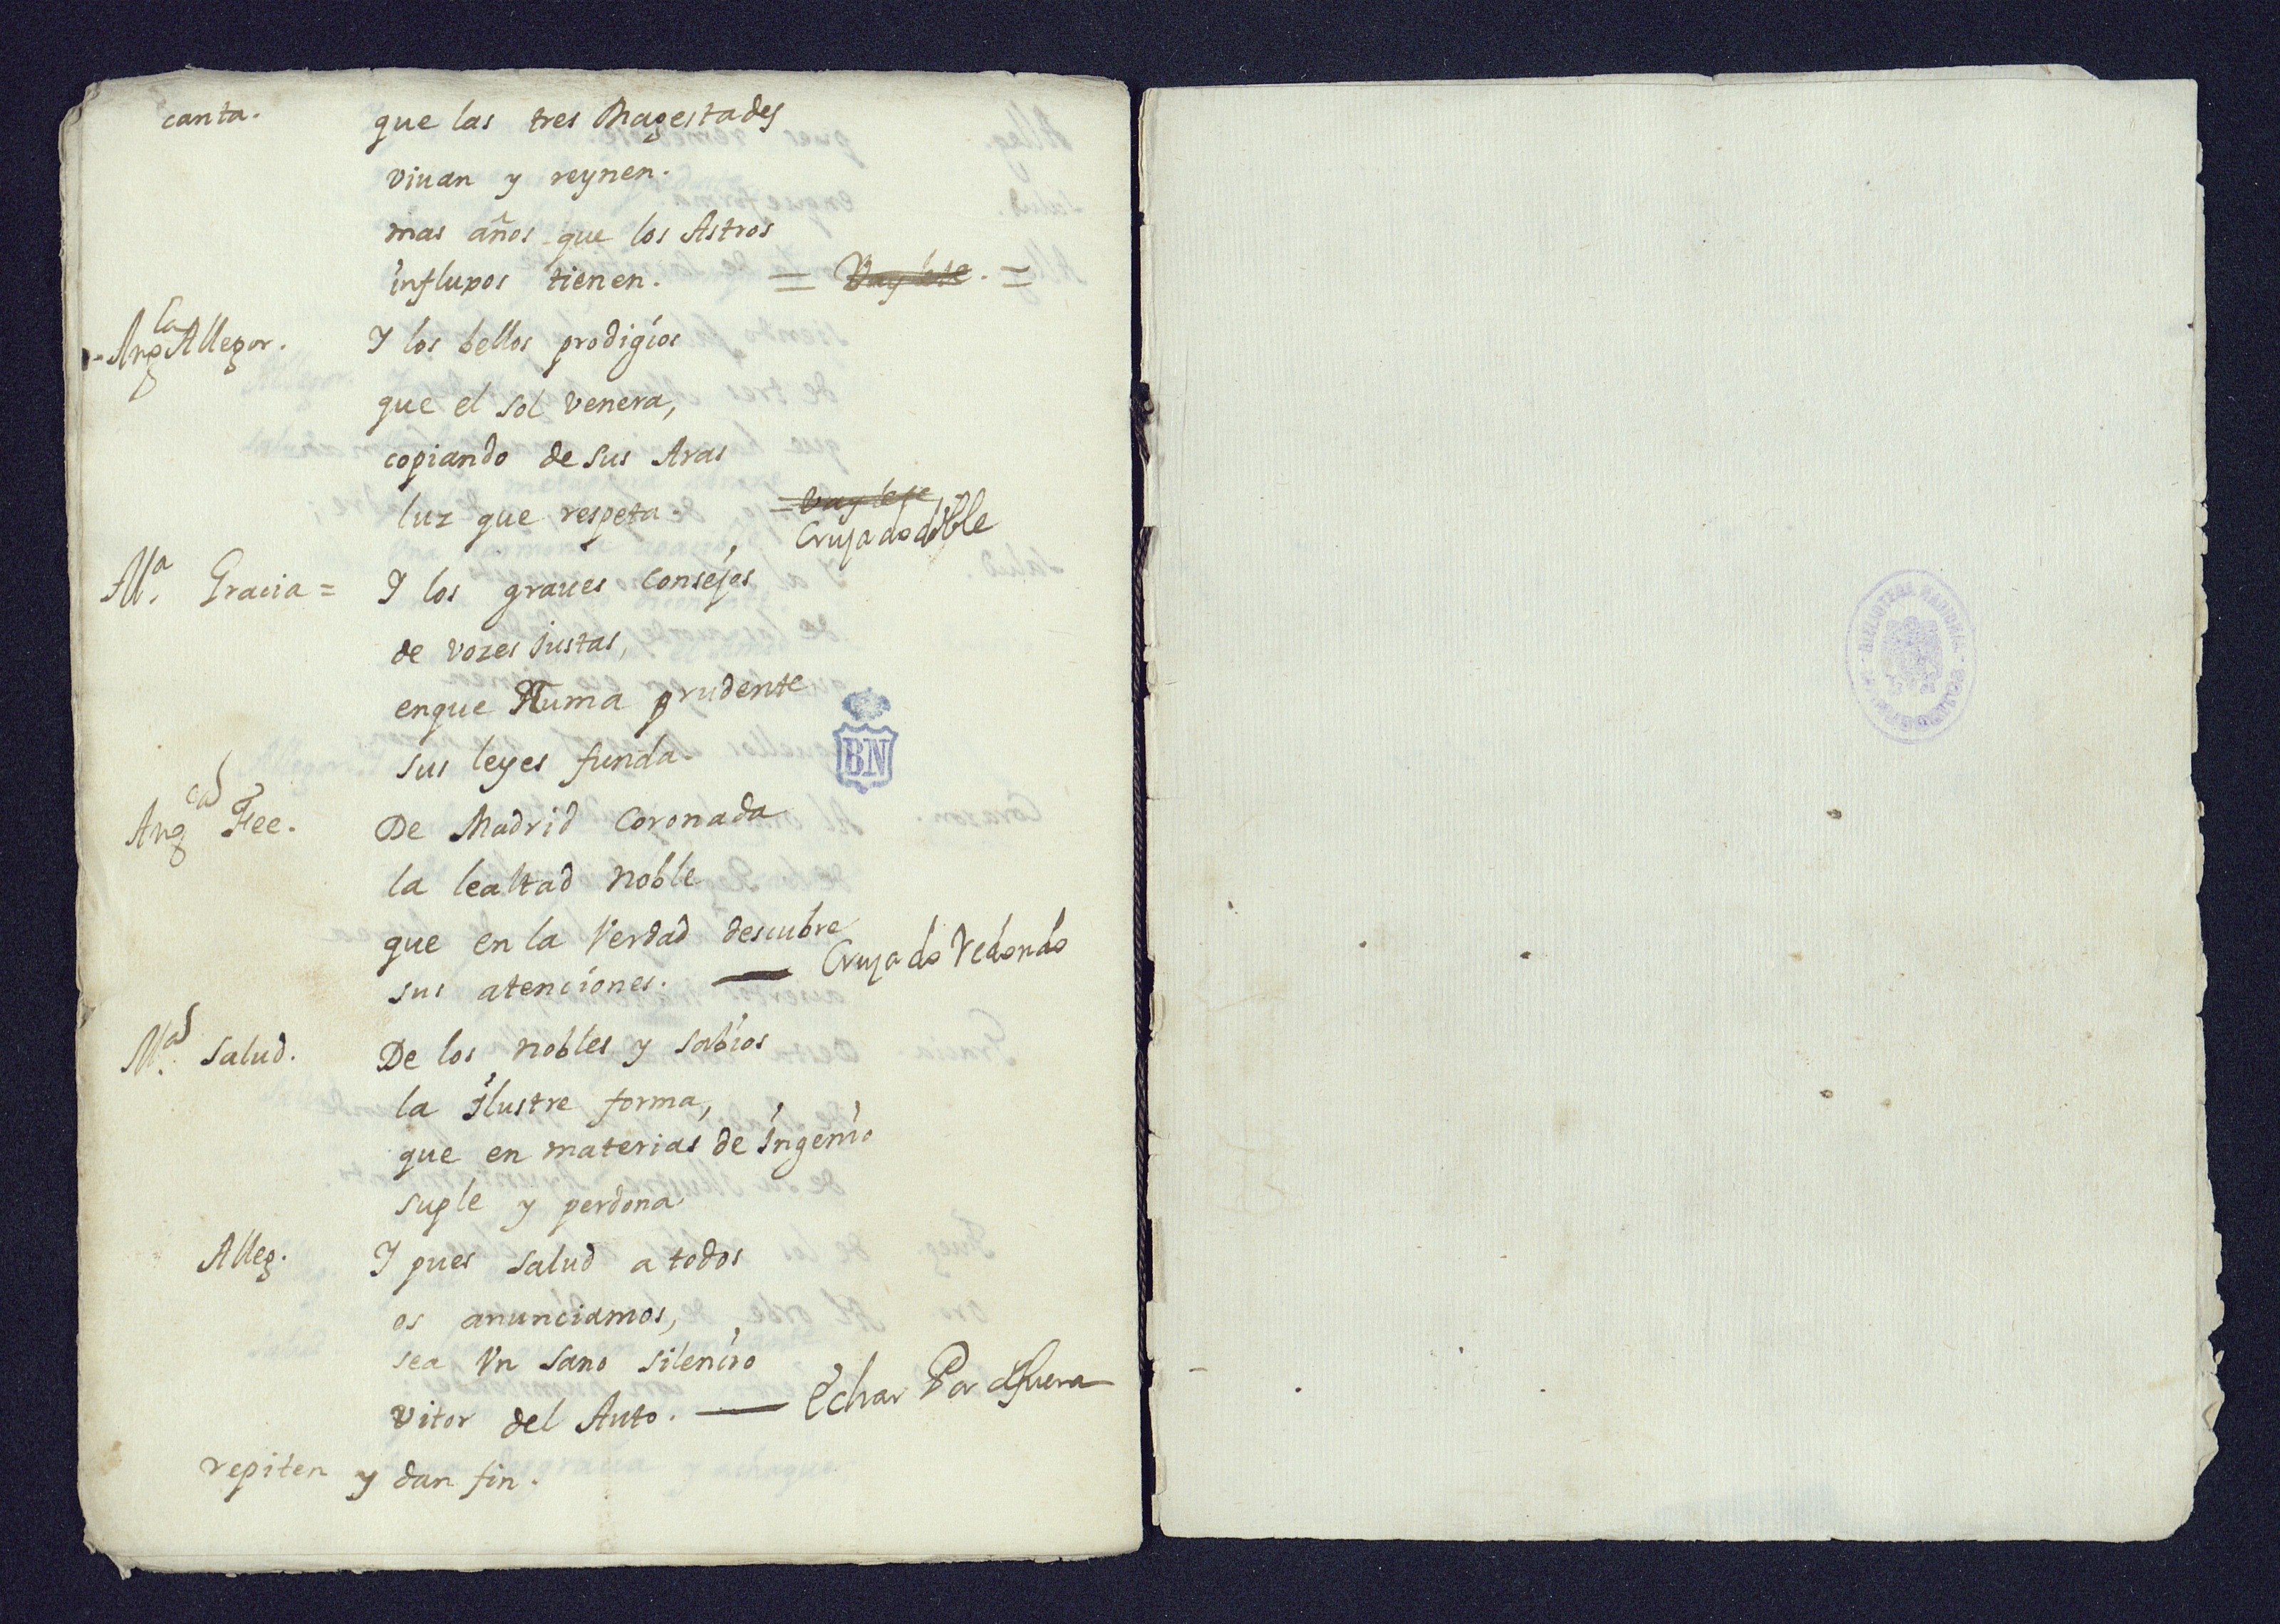 canta. que las tres Magestades
viuan y reynen.
mas años que los Astros
influxos tienen. = Baylete. =
Angla Allegor. Y los bellos prodigios
que el sol venera,
copiando de sus Aras
luz que respeta. = Baylete
Cruzado doble
Ma. Gracia = Y los graues consejos
de vozes justas,
enque Numa prudente
sus leyes funda.
BN
Ang Fee. De Madrid Coronada
la lealtad noble
que en la Verdad descubre
sus atenciones. — Cruzado Redondo
Salud. De los nobles y sabios
la ilustre forma,
que en materias de ingenio
suple y perdona
Alleg. Y pues salud a todos
os anunciamos,
sea Vn sano silencio
vitor del Auto. — Echar Por afuera
repiten y dan fin.
BIBLIOTECA NACIONAL